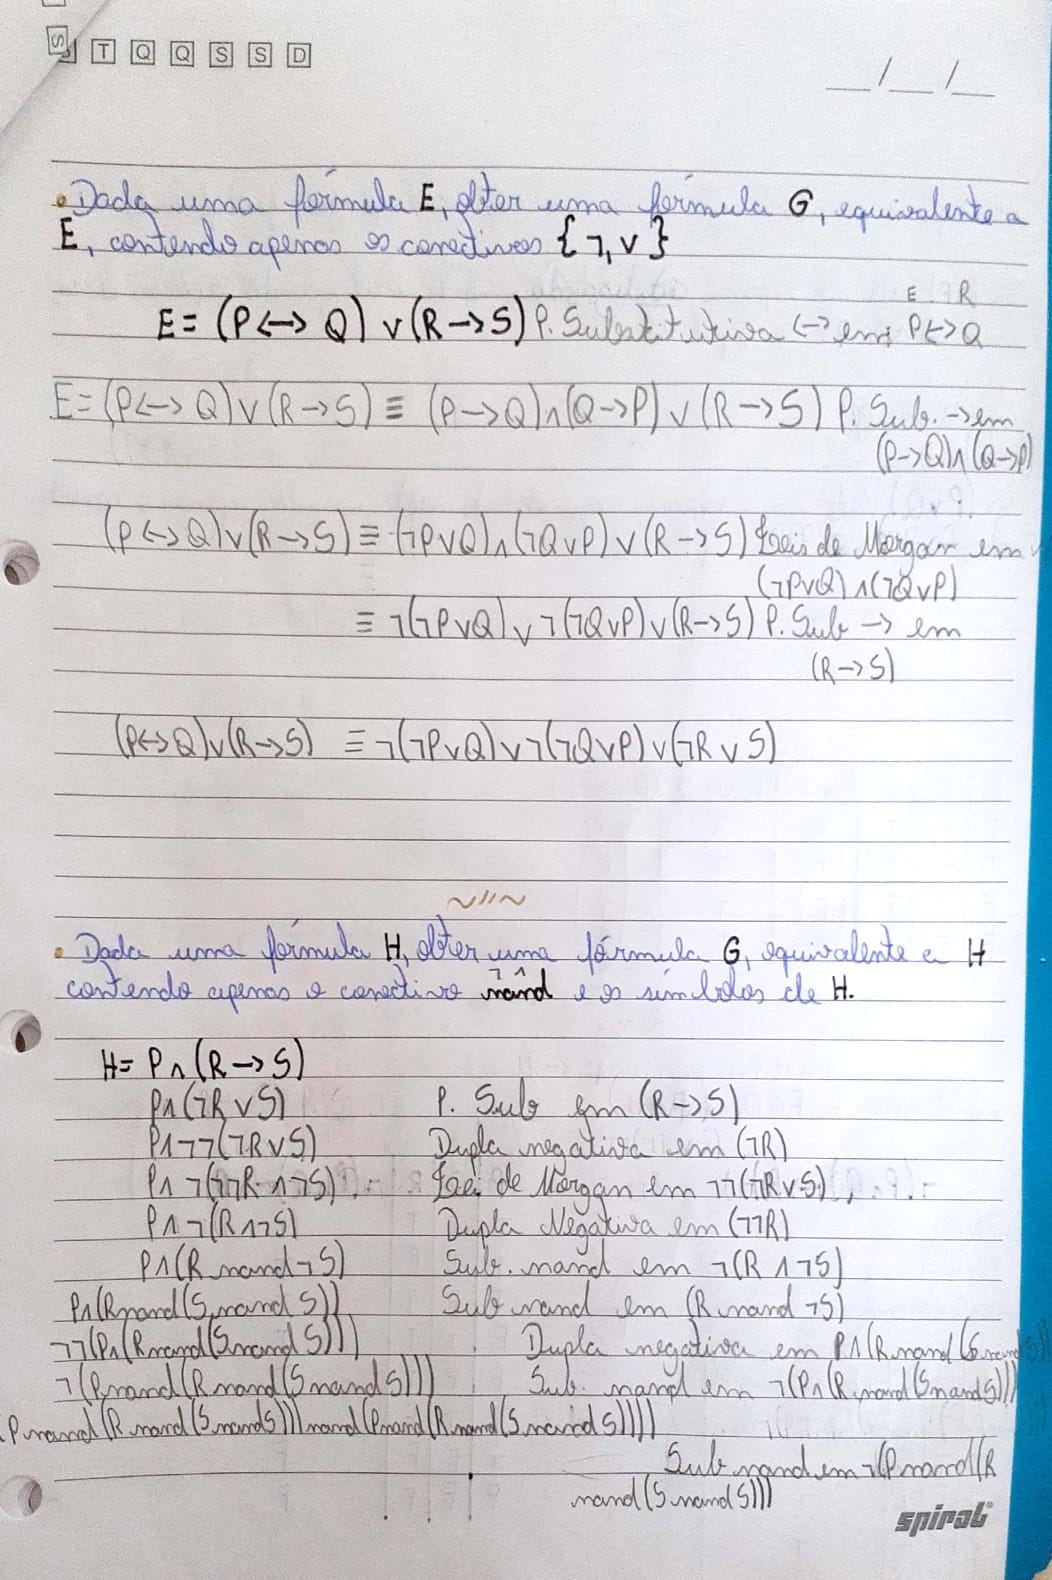 S T Q Q S S D
__/__/__
• Dada uma fórmula E, obter uma fórmula G, equivalente a
E, contendo apenas os conectivos {¬, ∨}
E R
E = (P ↔ Q) ∨ (R → S) P. Substitutiva ↔ em P ↔ Q
E = (P ↔ Q) ∨ (R → S) ≡ (P → Q) ∧ (Q → P) ∨ (R → S) P. Sub. → em
(P → Q) ∧ (Q → P)
(P ↔ Q) ∨ (R → S) ≡ (¬P ∨ Q) ∧ (¬Q ∨ P) ∨ (R → S) Leis de Morgan em
(¬P ∨ Q) ∧ (¬Q ∨ P)
≡ ¬(¬P ∨ Q) ∨ ¬(¬Q ∨ P) ∨ (R → S) P. Sub → em
(R → S)
(P ↔ Q) ∨ (R → S) ≡ ¬(¬P ∨ Q) ∨ ¬(¬Q ∨ P) ∨ (¬R ∨ S)
~//~
• Dada uma fórmula H, obter uma fórmula G, equivalente a H
¬ ^
contendo apenas o conectivo nand e os símbolos de H.
H = P ∧ (R → S)
P ∧ (¬R ∨ S) P. Sub em (R → S)
P ∧ ¬¬(¬R ∨ S) Dupla negativa em (¬R)
P ∧ ¬(¬¬R ∧ ¬S) Lei de Morgan em ¬¬(¬R ∨ S)
P ∧ ¬(R ∧ ¬S) Dupla Negativa em (¬¬R)
P ∧ (R nand ¬S) Sub. nand em ¬(R ∧ ¬S)
P ∧ (R nand (S nand S)) Sub nand em (R nand ¬S)
¬¬(P ∧ (R nand (S nand S))) Dupla negativa em P ∧ (R nand (S nand S))
¬(P nand (R nand (S nand S))) Sub. nand em ¬(P ∧ (R nand (S nand S)))
(P nand (R nand (S nand S))) nand (P nand (R nand (S nand S))))
Sub nand em ¬(P nand (R
nand (S nand S)))
spiral